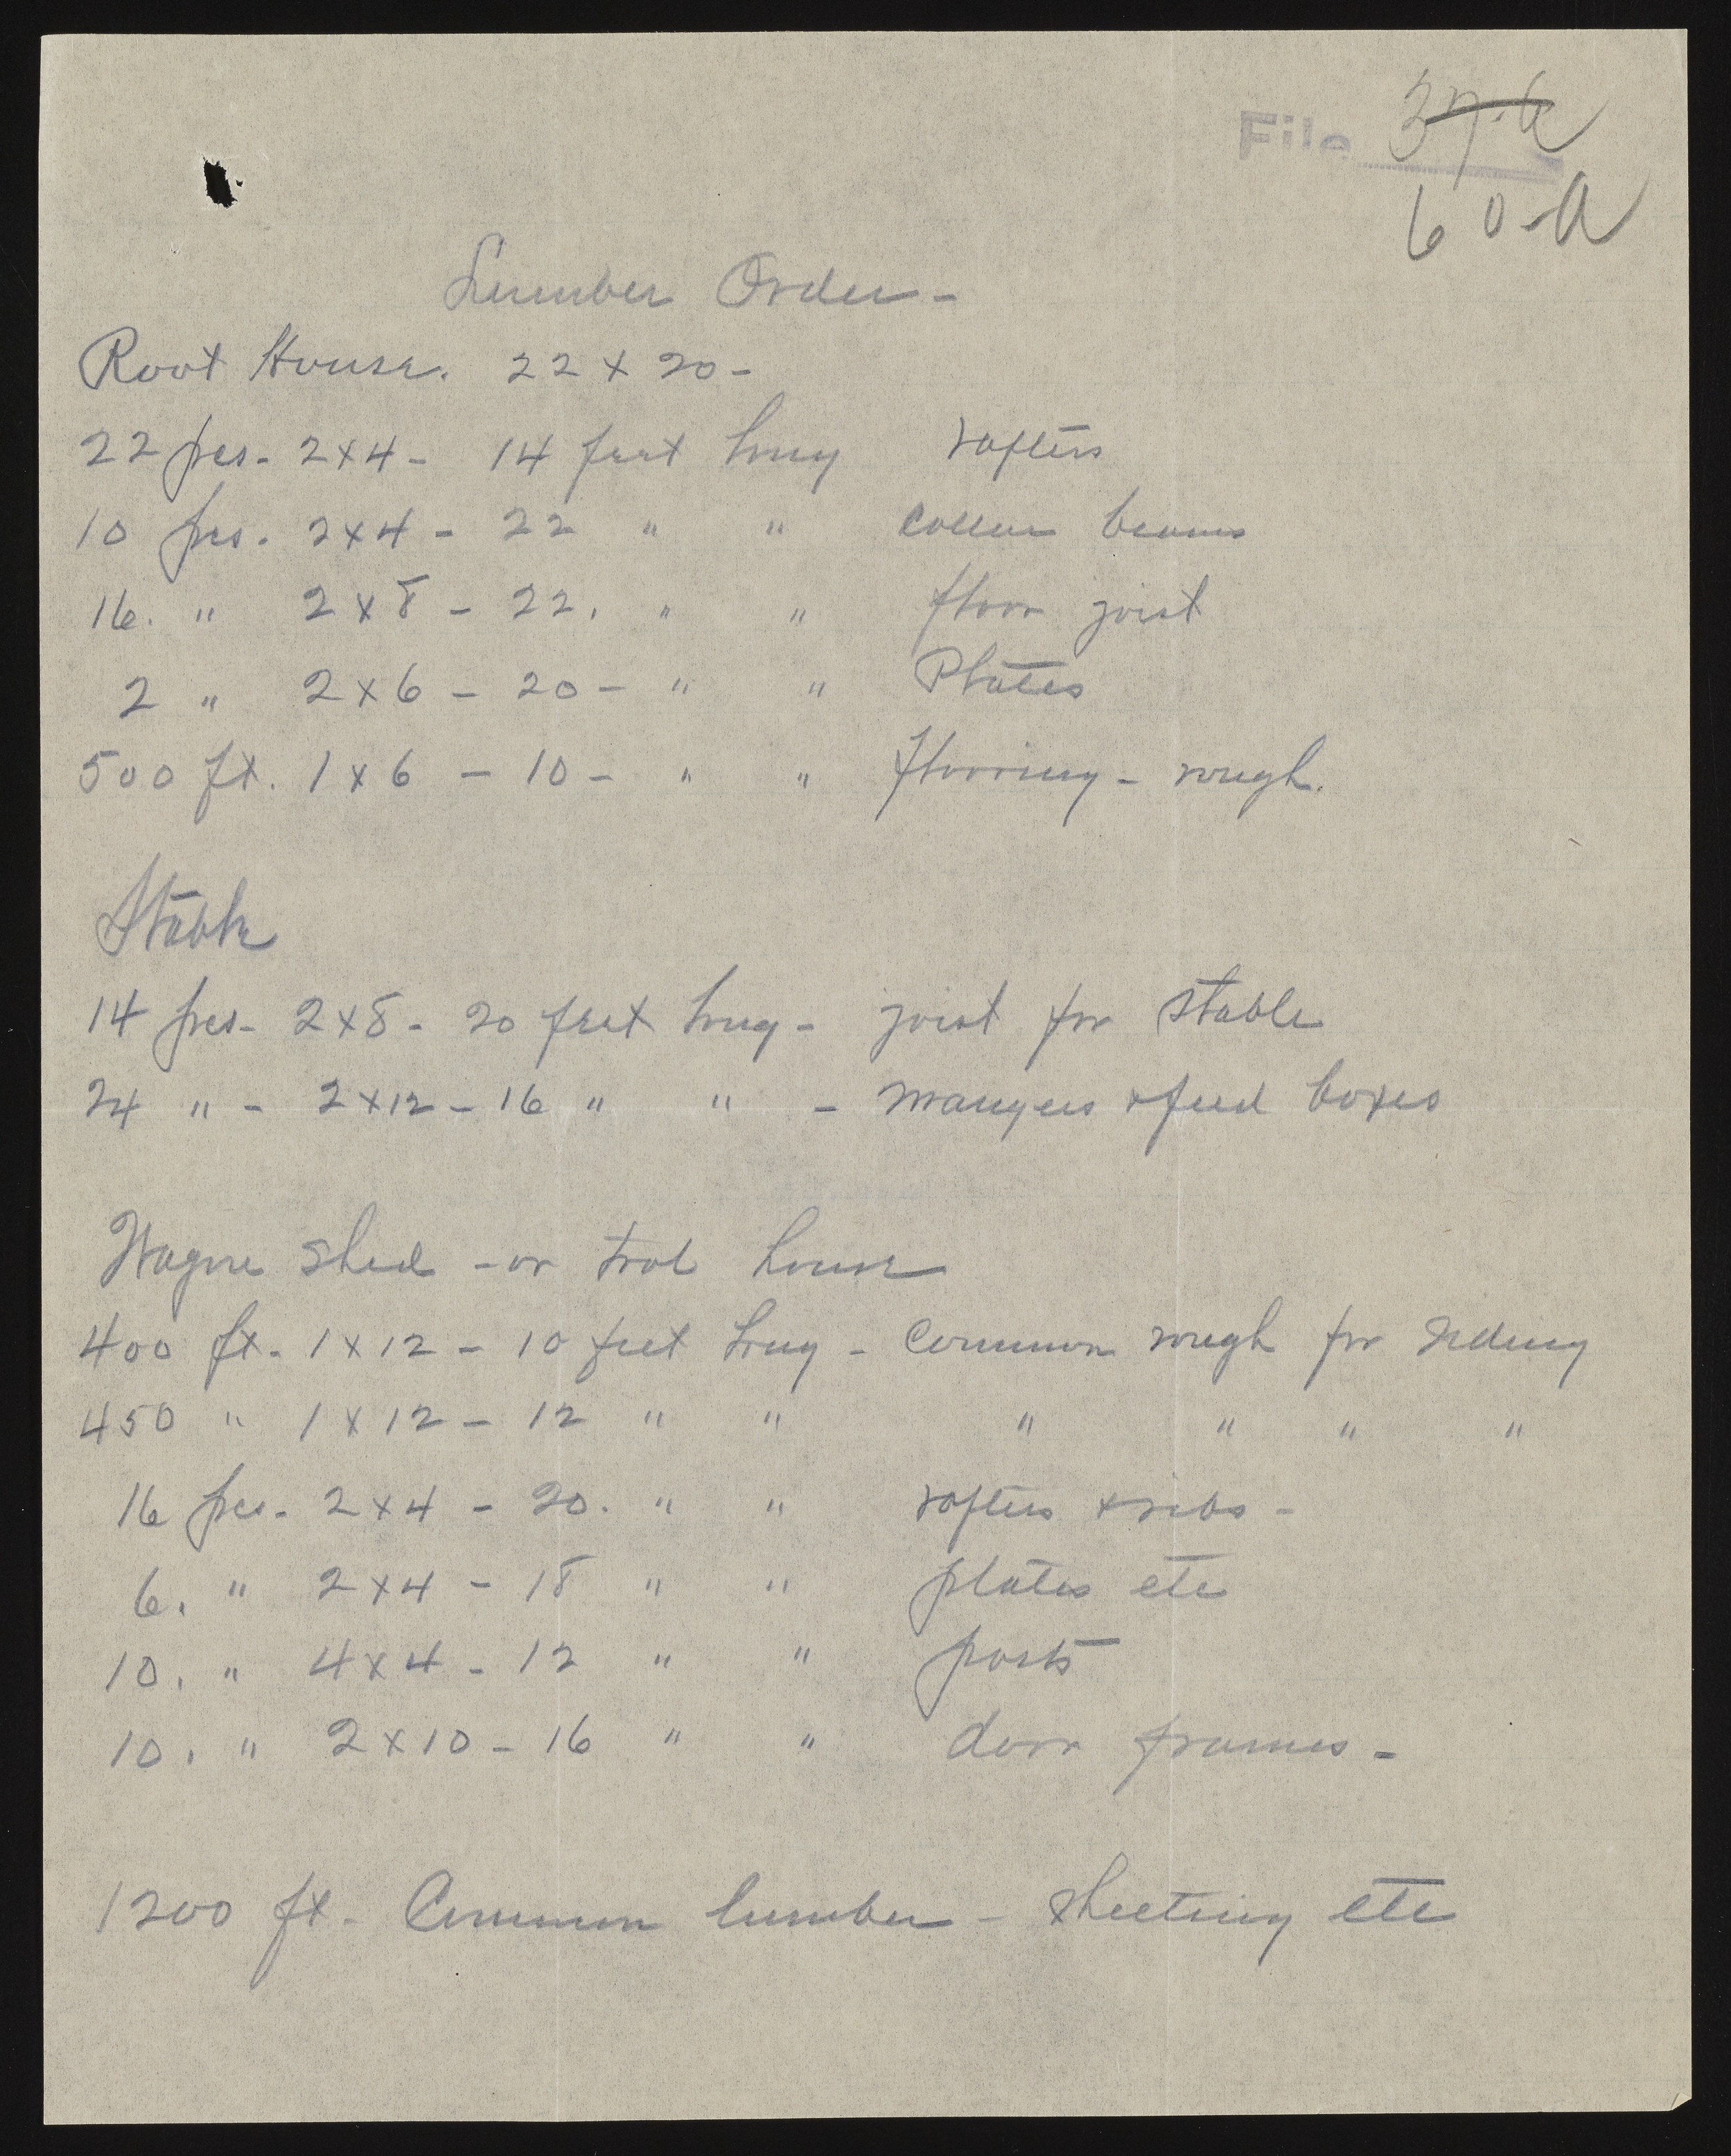 File 37.a
60-a
Lumber Order-
Root House. 22 x 20-
22 pcs- 2x4- 14 feet long rafters
10 pcs. 2x4 - 22 " " collar beams
16. " 2x8 - 22. " " floor joist
2 " 2x6 - 20 - " " Plates
500 ft. 1x6 - 10 - " " flooring - rough.
Stable
14 pcs- 2x8- 20 feet long - joist for stable
24 " - 2x12 - 16 " " - mangers & feed boxes
Wagon shed - or tool house
400 ft. 1x12 - 10 feet long - common rough for siding
450 " 1x12 - 12 " " " " " "
16 pcs. 2x4 - 20. " " rafters & ribs -
6. " 2x4 - 18 " " plates etc
10. " 4x4 - 12 " " posts
10. " 2x10 - 16 " " door frames -
1200 ft. Common lumber - sheeting etc